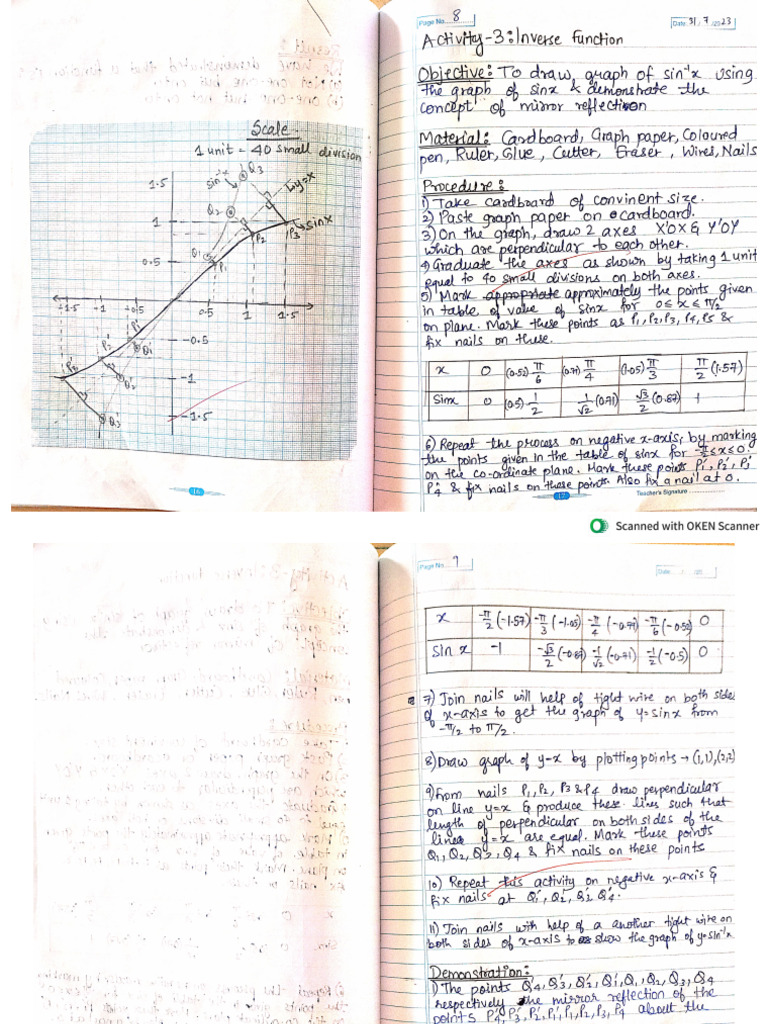 Page No. 8
Date 31/7/2023
Activity-3: Inverse function
Objective: To draw graph of sin⁻¹x using
the graph of sinx & demonstrate the
concept of mirror reflection
Material: Cardboard, Graph paper, Coloured
pen, Ruler, Glue, Cutter, Eraser, Wires, Nails
Procedure:
1) Take cardboard of convinent size.
2) Paste graph paper on cardboard.
3) On the graph, draw 2 axes X'OX & Y'OY
which are perpendicular to each other.
4) Graduate the axes as shown by taking 1 unit
equal to 40 small divisions on both axes.
5) Mark approximately the points given
in table of value of sinx for 0≤x≤π/2
on plane. Mark these points as P1, P2, P3, P4, P5 &
fix nails on these.
x 0 (0.52) π/6 (0.71) π/4 (1.05) π/3 π/2 (1.57)
Sinx 0 (0.5) 1/2 1/√2 (0.71) √3/2 (0.87) 1
6) Repeat the process on negative x-axis, by marking
the points given in the table of sinx for -π/2≤x≤0.
on the co-ordinate plane. Mark these points P1', P2', P3'
P4' & fix nails on these points. Also fix a nail at O.
Teacher's Signature
17
Scale
1 unit = 40 small division
sin⁻¹x
Q3
y=x
1.5
Q2
sinx
1
P2
P3
Q1
0.5
P1
-1.5 -1 -0.5 0.5 1 1.5
P1'
P2'
Q1'
-0.5
P3'
Q2'
-1
Q3'
-1.5
16
Scanned with OKEN Scanner
Page No. 9
Date
x -π/2 (-1.57) -π/3 (-1.05) -π/4 (-0.79) -π/6 (-0.52) 0
Sin x -1 -√3/2 (-0.87) -1/√2 (-0.71) -1/2 (-0.5) 0
7) Join nails will help of tight wire on both sides
of x-axis to get the graph of y=sinx from
-π/2 to π/2.
8) Draw graph of y-x by plotting points → (1,1), (2,2)
9) From nails P1, P2, P3 & P4 draw perpendicular
on line y=x & produce these lines such that
length of perpendicular on both sides of the
line y=x are equal. Mark these points
Q1, Q2, Q3, Q4 & fix nails on these points
10) Repeat this activity on negative x-axis &
fix nails at Q1', Q2', Q3' Q4'.
11) Join nails with help of a another tight wire on
both sides of x-axis to show the graph of y=sin⁻¹x
Demonstration:
1) The points Q4', Q3', Q2', Q1', Q1, Q2, Q3, Q4
respectively the mirror reflection of the
points P4', P3', P2', P1', P1, P2, P3, P4 about the